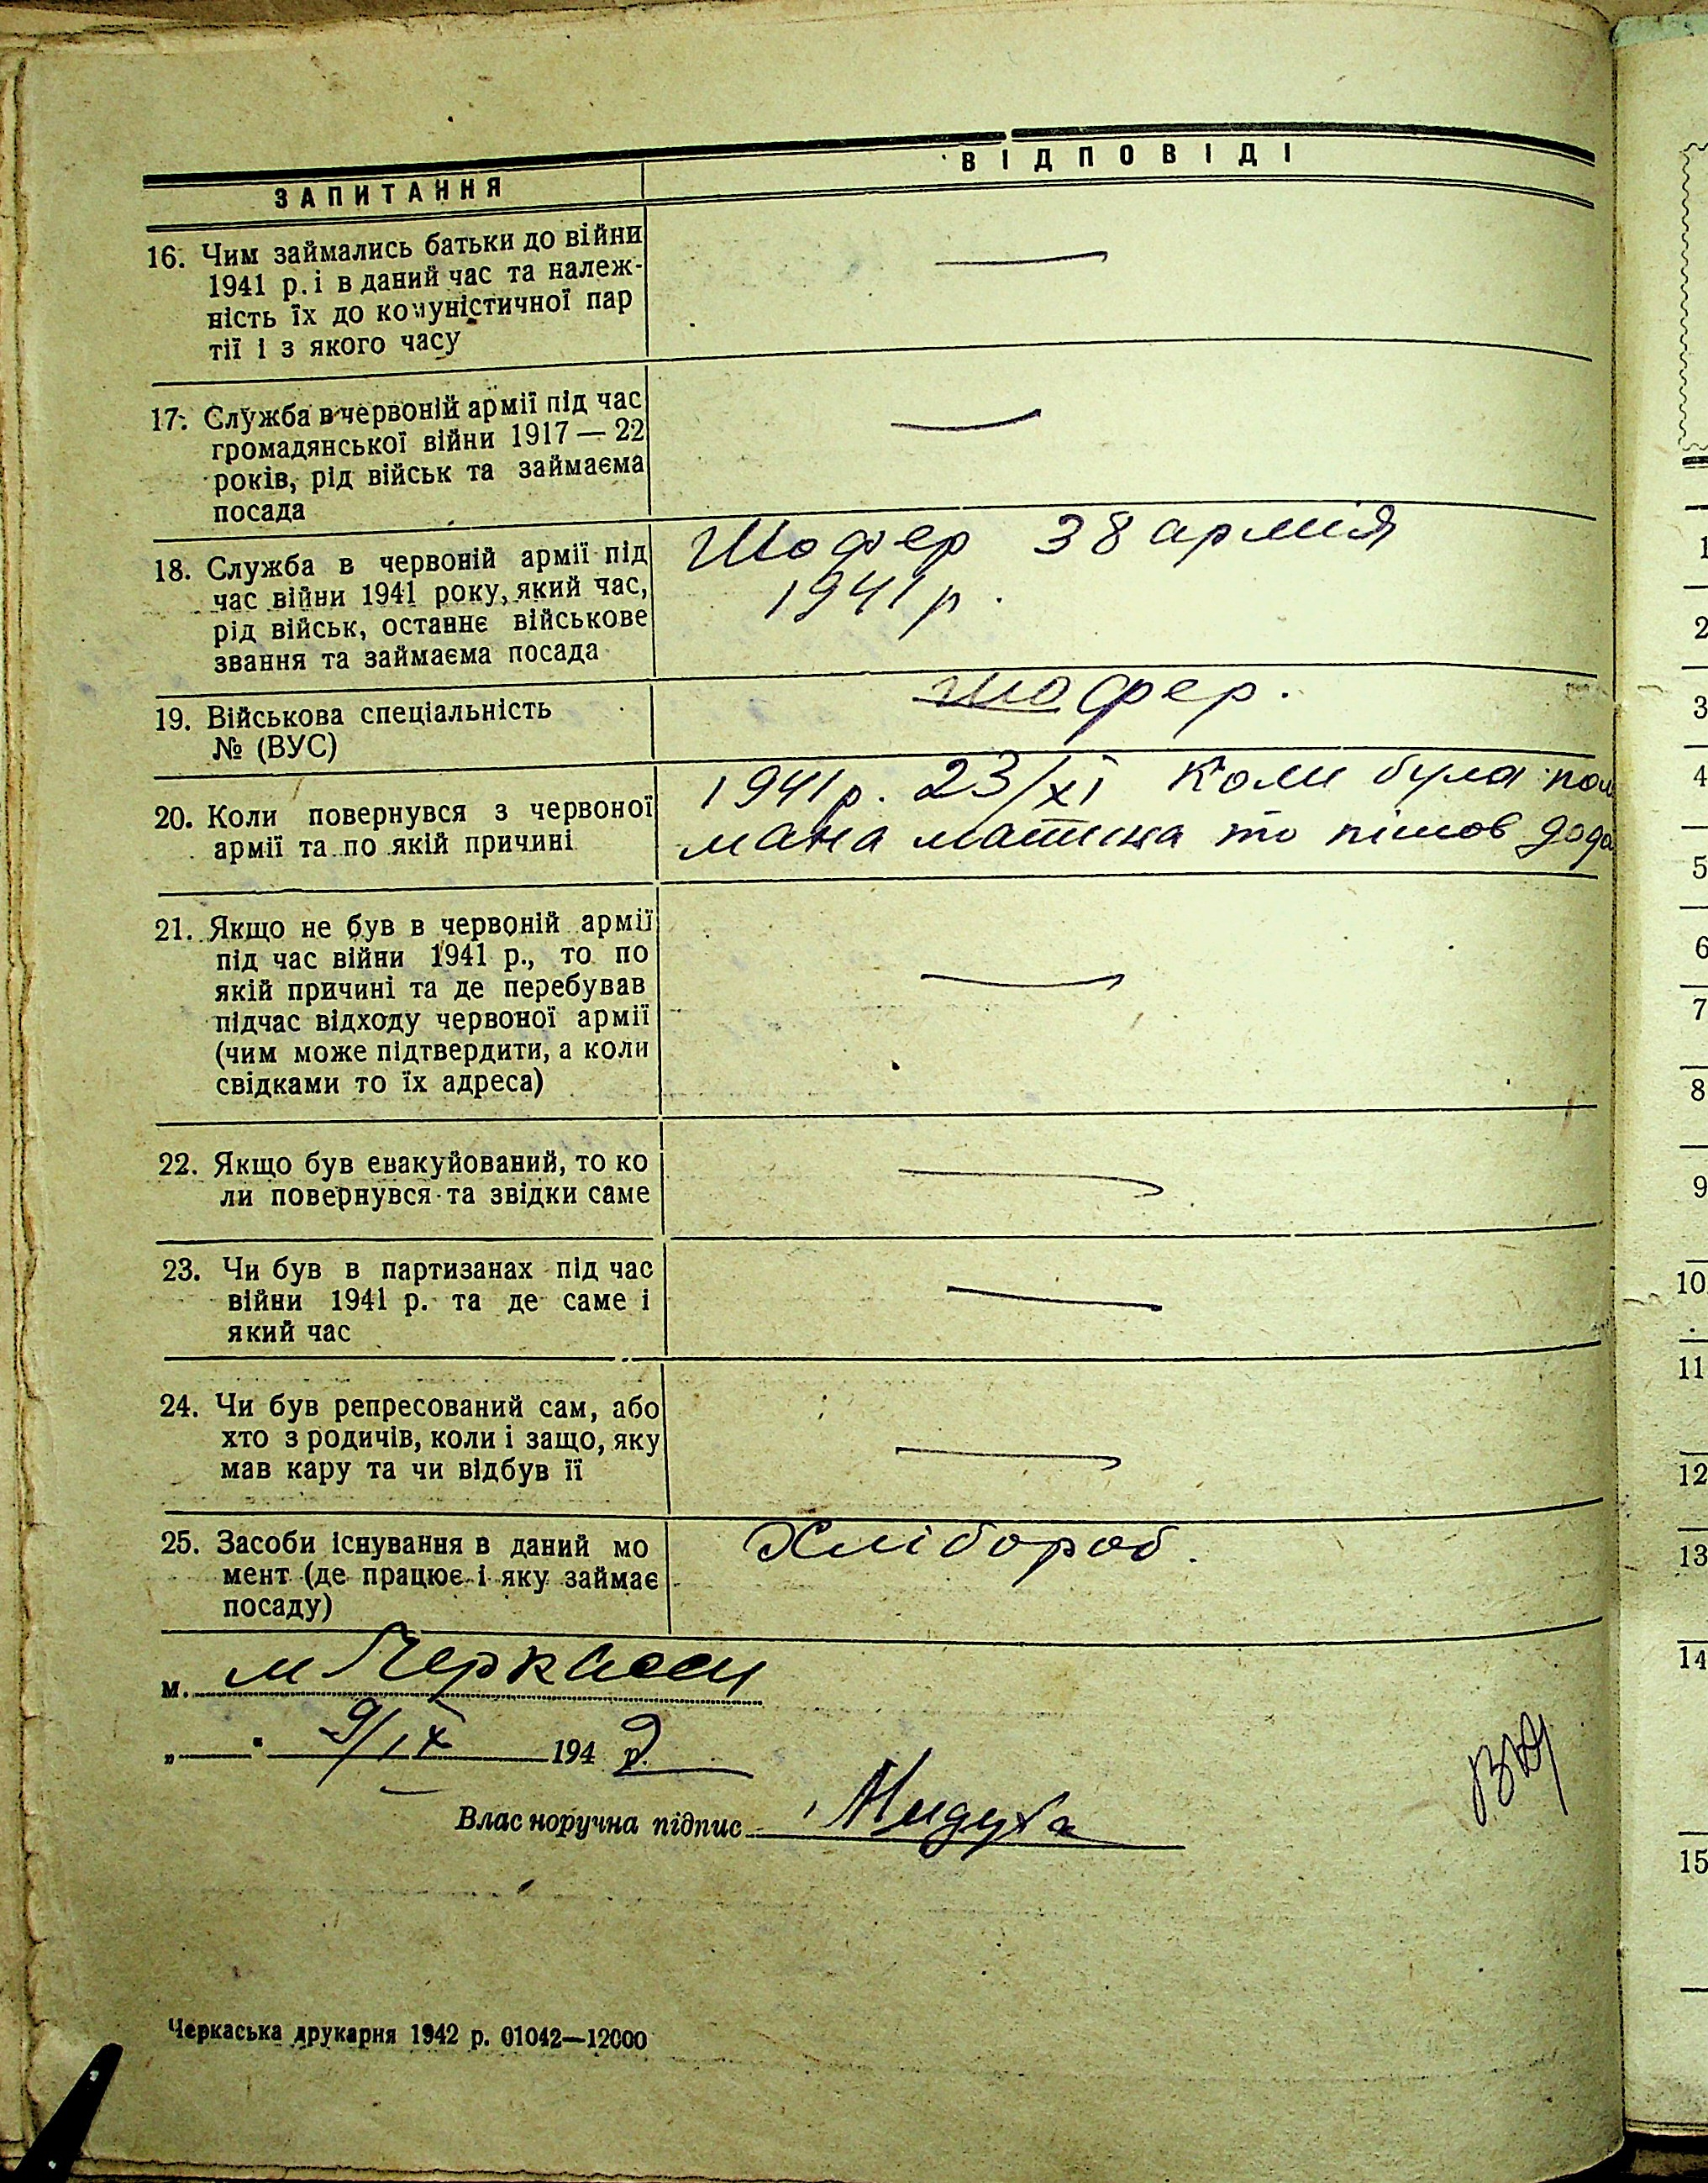 ЗАПИТАННЯ
ВІДПОВІДІ
16. Чим займались батьки до війни
1941 р. і в даний час та належ-
ність їх до комуністичної пар
тії і з якого часу
17. Служба в червоній армії під час
громадянської війни 1917 — 22
років, рід військ та займаєма
посада
18. Служба в червоній армії під
час війни 1941 року, який час,
рід військ, останнє військове
звання та займаєма посада
Шофер 38 армія
1941 р.
19. Військова спеціальність
№ (ВУС)
шофер.
20. Коли повернувся з червоної
армії та по якій причині
1941 р. 23/XI Коли була пол
мана машина то пішов дода
21. Якщо не був в червоній армії
під час війни 1941 р., то по
якій причині та де перебував
підчас відходу червоної армії
(чим може підтвердити, а коли
свідками то їх адреса)
22. Якщо був евакуйований, то ко
ли повернувся та звідки саме
23. Чи був в партизанах під час
війни 1941 р. та де саме і
який час
24. Чи був репресований сам, або
хто з родичів, коли і защо, яку
мав кару та чи відбув її
25. Засоби існування в даний мо
мент (де працює і яку займає
посаду)
Хлібороб.
м. м Черкаси
„ “ 9/IX 194 2 р.
Власноручна підпис
Черкаська друкарня 1942 р. 01042—12000
1
2
3
4
5
6
7
8
9
10
11
12
13
14
15